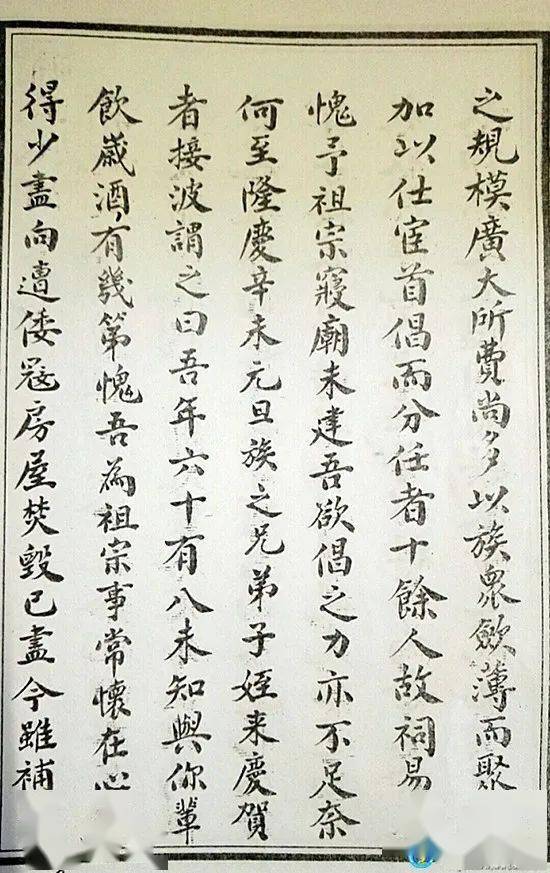 之規模廣大所費尚多以族眾歛薄而聚
加以仕宦首倡而分任者十餘人故祠易
愧予祖宗寢廟未建吾欲倡之力亦不足奈
何至隆慶辛未元旦族之兄弟子姪来慶賀
者接波謂之曰吾年六十有八未知與你輩
飲歲酒有幾第愧吾為祖宗事常懷在心
得少盡向遭倭寇房屋焚毀已盡今雖補